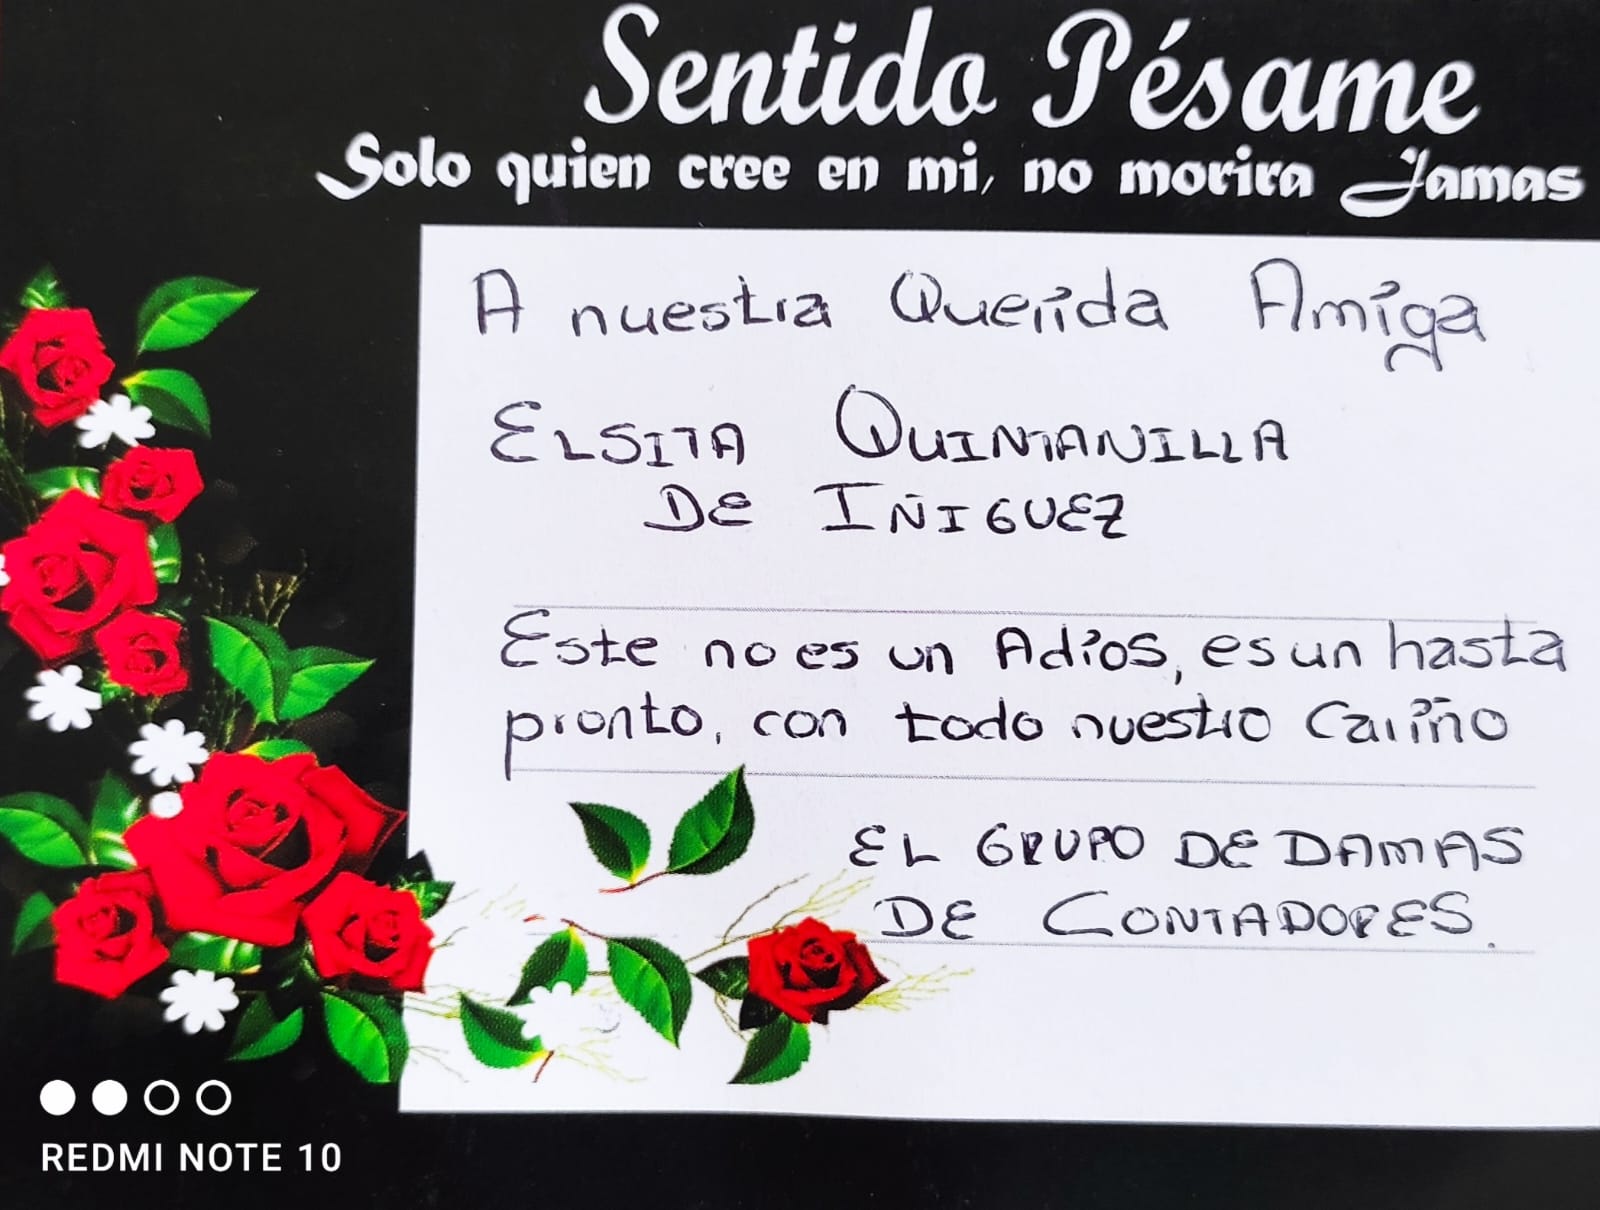 Sentido Pésame
Solo quien cree en mi, no morira Jamas
A nuestra Querida Amiga
ELSITA QUINTANILLA
DE IÑIGUEZ
Este no es un Adios, es un hasta
pronto, con todo nuestro Cariño
EL GRUPO DE DAMAS
DE CONTADORES.
REDMI NOTE 10